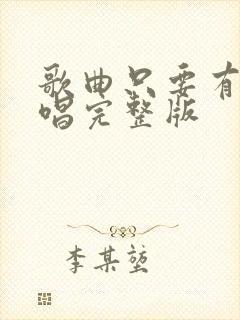 歌曲只要有
唱完整版
李某堃